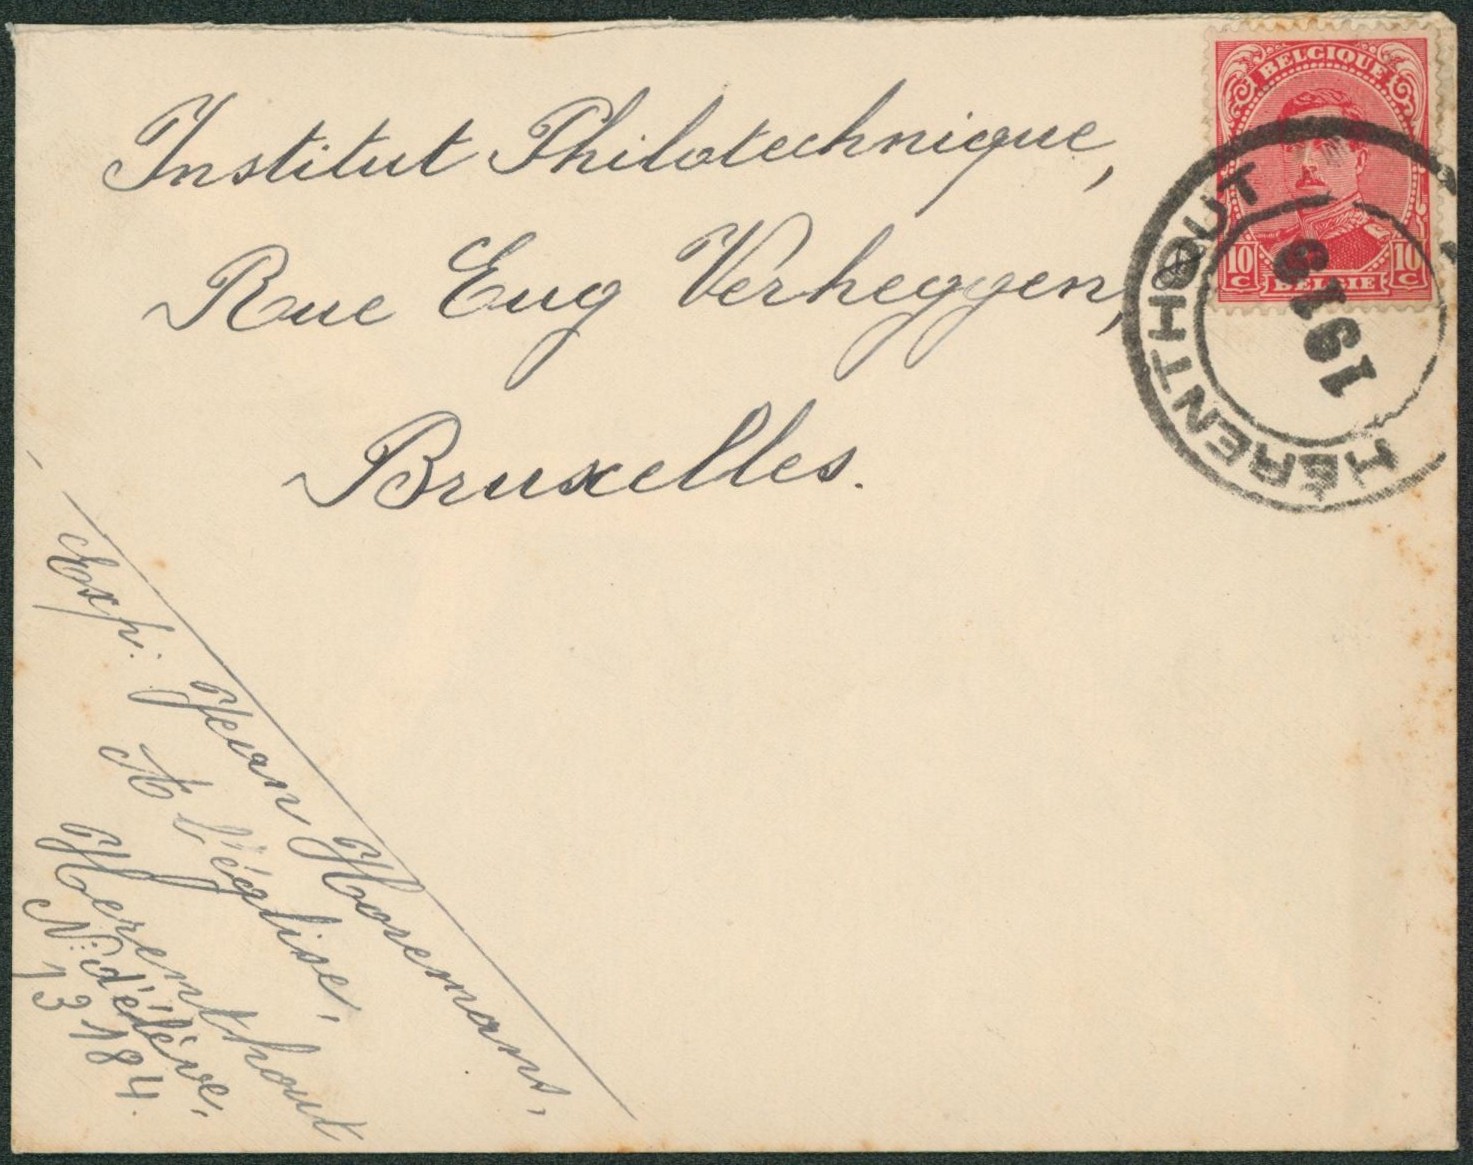 Institut Philotechnique,
Rue Eug Verheggen,
Bruxelles.
BELGIQUE
10 C 10 C
BELGIË
HÉRENTHOUT
1919
Exp: Jean Horemans,
A l'église,
Herenthout
N: d'élève,
13184.